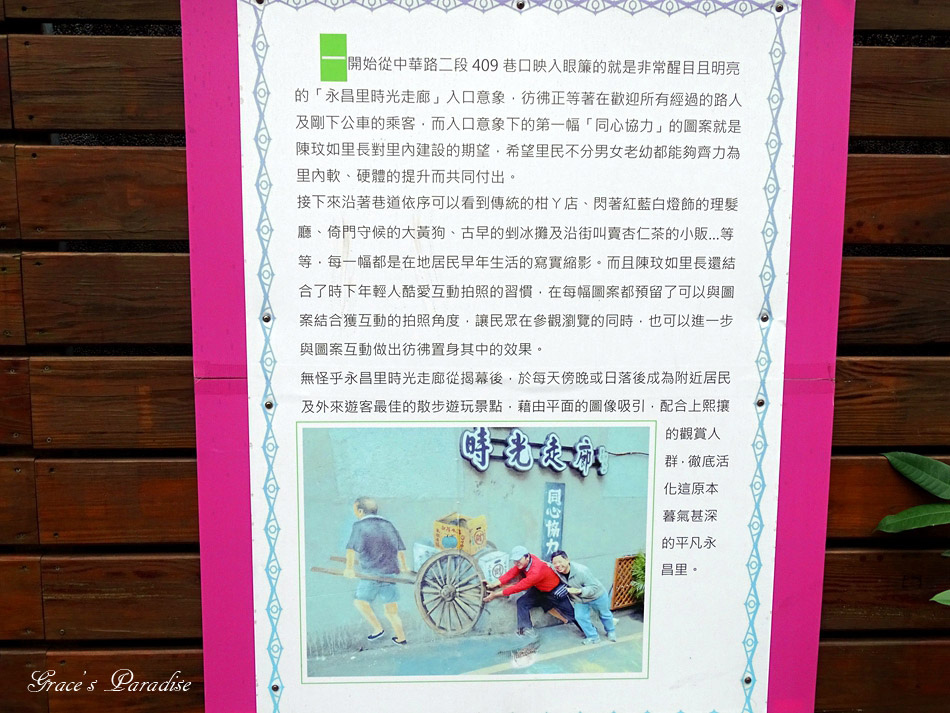 一開始從中華路二段 409 巷口映入眼簾的就是非常醒目且明亮
的「永昌里時光走廊」入口意象，彷彿正等著在歡迎所有經過的路人
及剛下公車的乘客，而入口意象下的第一幅「同心協力」的圖案就是
陳玟如里長對里內建設的期望，希望里民不分男女老幼都能夠齊力為
里內軟、硬體的提升而共同付出。
接下來沿著巷道依序可以看到傳統的柑ㄚ店、閃著紅藍白燈飾的理髮
廳、倚門守候的大黃狗、古早的剉冰攤及沿街叫賣杏仁茶的小販...等
等，每一幅都是在地居民早年生活的寫實縮影。而且陳玟如里長還結
合了時下年輕人酷愛互動拍照的習慣，在每幅圖案都預留了可以與圖
案結合獲互動的拍照角度，讓民眾在參觀瀏覽的同時，也可以進一步
與圖案互動做出彷彿置身其中的效果。
無怪乎永昌里時光走廊從揭幕後，於每天傍晚或日落後成為附近居民
及外來遊客最佳的散步遊玩景點，藉由平面的圖像吸引，配合上熙攘
的觀賞人
群，徹底活
化這原本
暮氣甚深
的平凡永
昌里。
時光走廊
同心協力
Grace's Paradise